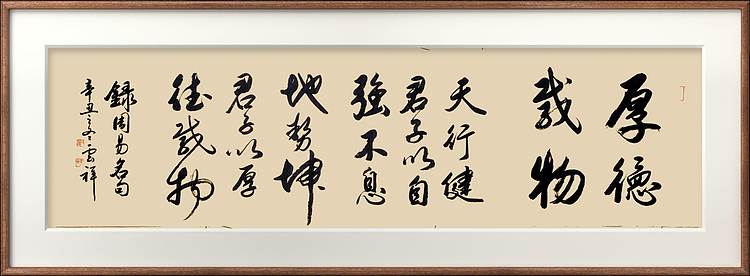 厚德
載物
天行健
君子以自
強不息
地势坤
君子以厚
德載物
録周易名句
辛丑之冬雲祥